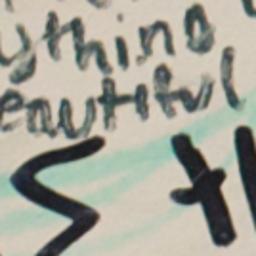 ything
eautiful
St